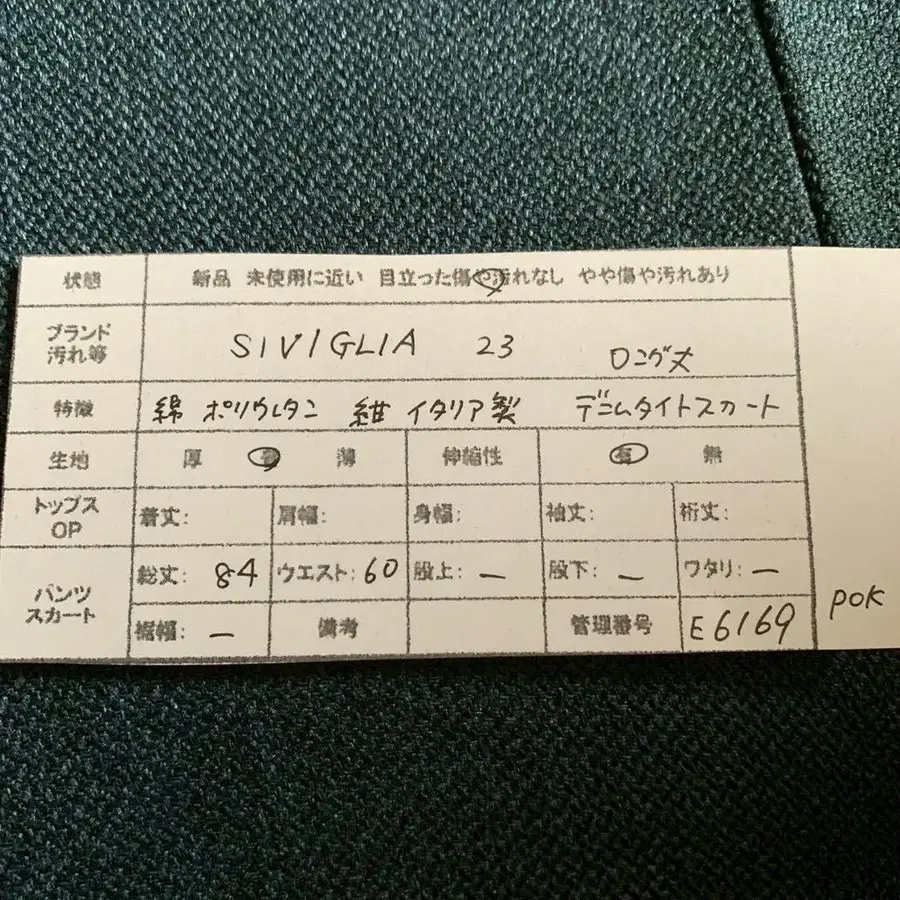 状態 新品 未使用に近い 目立った傷や汚れなし やや傷や汚れあり
ブランド
汚れ等 SIVIGLIA 23 ロング丈
特徴 綿 ポリウレタン 紺 イタリア製 デニムタイトスカート
生地 厚 普 薄 伸縮性 有 無
トップス
OP 着丈: 肩幅: 身幅: 袖丈: 裄丈:
パンツ
スカート 総丈: 84 ウエスト: 60 股上: — 股下: — ワタリ: —
裾幅: — 備考 管理番号 E6169 POK